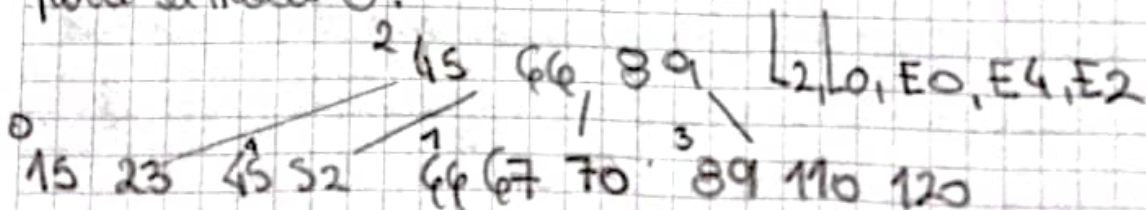 2 45 66 89 L2, L0, E0, E4, E2
0 15 23 4 45 52 1 66 67 70 3 89 110 120